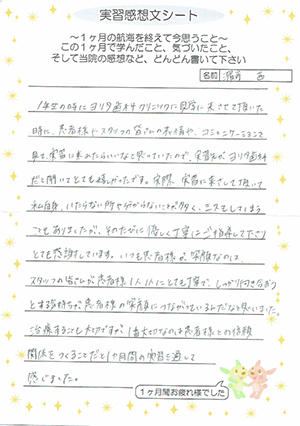 実習感想文シート
～1ヶ月の航海を終えて今思うこと～
この1ヶ月で学んだこと、気づいたこと、
そして当院の感想など、どんどん書いて下さい
名前
1年生の時にヨリタ歯科クリニックに見学に来させて頂いた
時に、患者様やスタッフの皆さんの表情や、コミュニケーションを
見て、実習に来れたらいいなと思っていたので、実習先がヨリタ歯科
だと聞いてとても嬉しかったです。実際、実習に来させて頂いて
私自身、いたらない所や分からないことが多く、ミスをしてしまう
こともありましたが、そのたびに優しく丁寧にご指導して下さり
とても感謝しています。いつも患者様が笑顔なのは、
スタッフの皆さんが患者様1人1人にとても丁寧で、しっかり向き合おう
とする気持ちが患者様の笑顔につながっているんだなと思いました。
治療することも大切ですが、1番大切なのは患者様との信頼
関係をつくることだと1ヶ月間の実習を通して
感じました。
1ヶ月間お疲れ様でした